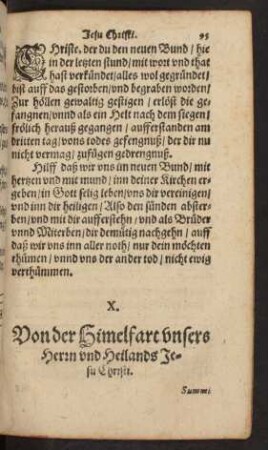 Jesu Christi. 95
CHriste, der du den neuen Bund/ hie
in der letzten stund/ mit wort vnd that
hast verkündet/ alles wol gegründet/
bist auff das gestorben/ vnd begraben worden/
Zur höllen gewaltig gestigen/ erlößt die ge-
fangnen/ vnnd als ein Helt nach dem siegen/
frölich herauß gegangen/ aufferstanden am
dritten tag/ vons todes gefengnuß/ der dir nu
nicht vermag/ zufügen gedrengnuß.
Hilff daß wir uns im neuen Bund/ mit
hertzen vnd mit mund/ inn deiner Kirchen er
geben/ in Gott selig leben/ vns dir vereinigen/
vnd inn dir heiligen/ Also den sünden abster-
ben/ vnd mit dir aufferstehn/ vnd als Brüder
vnnd Miterben/ dir demütig nachgehn/ auff
daß wir vns inn aller noth/ nur dein möchten
rhümen/ vnnd vns der ander tod/ nicht ewig
verthümmen.
X.
Von der Himelfart vnsers
Herrn vnd Heilands Je-
su Christi.
Summi